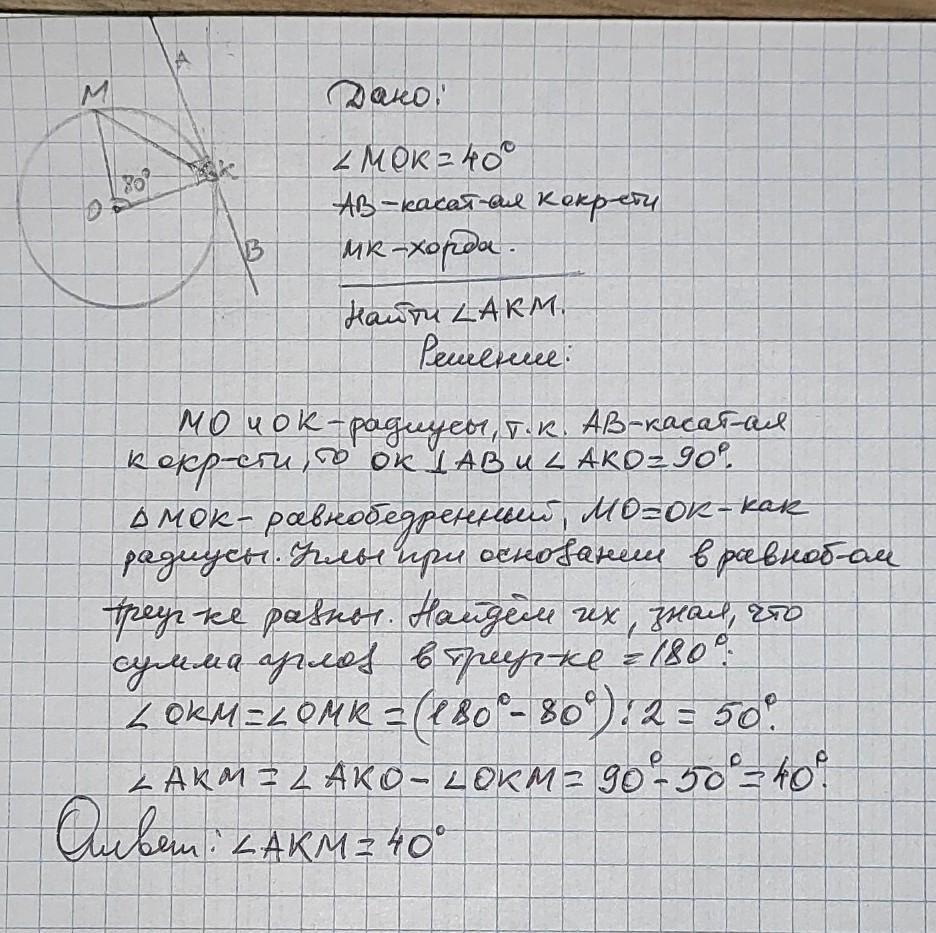 A
M
80°
K
O
B
Дано:
∠MOK = 40°
AB-касат-ая к окр-сти
MK-хорда.
Найти ∠AKM.
Решение:
MO и OK-радиусы, т.к. AB-касат-ая
к окр-сти, то OK ⊥ AB и ∠AKO = 90°.
∆MOK- равнобедренный, MO=OK-как
радиусы. Углы при основании в равноб-ом
треуг-ке равны. Найдём их, зная, что
сумма углов в треуг-ке = 180°:
∠OKM = ∠OMK = (180° - 80°) : 2 = 50°.
∠AKM = ∠AKO - ∠OKM = 90° - 50° = 40°.
Ответ: ∠AKM = 40°